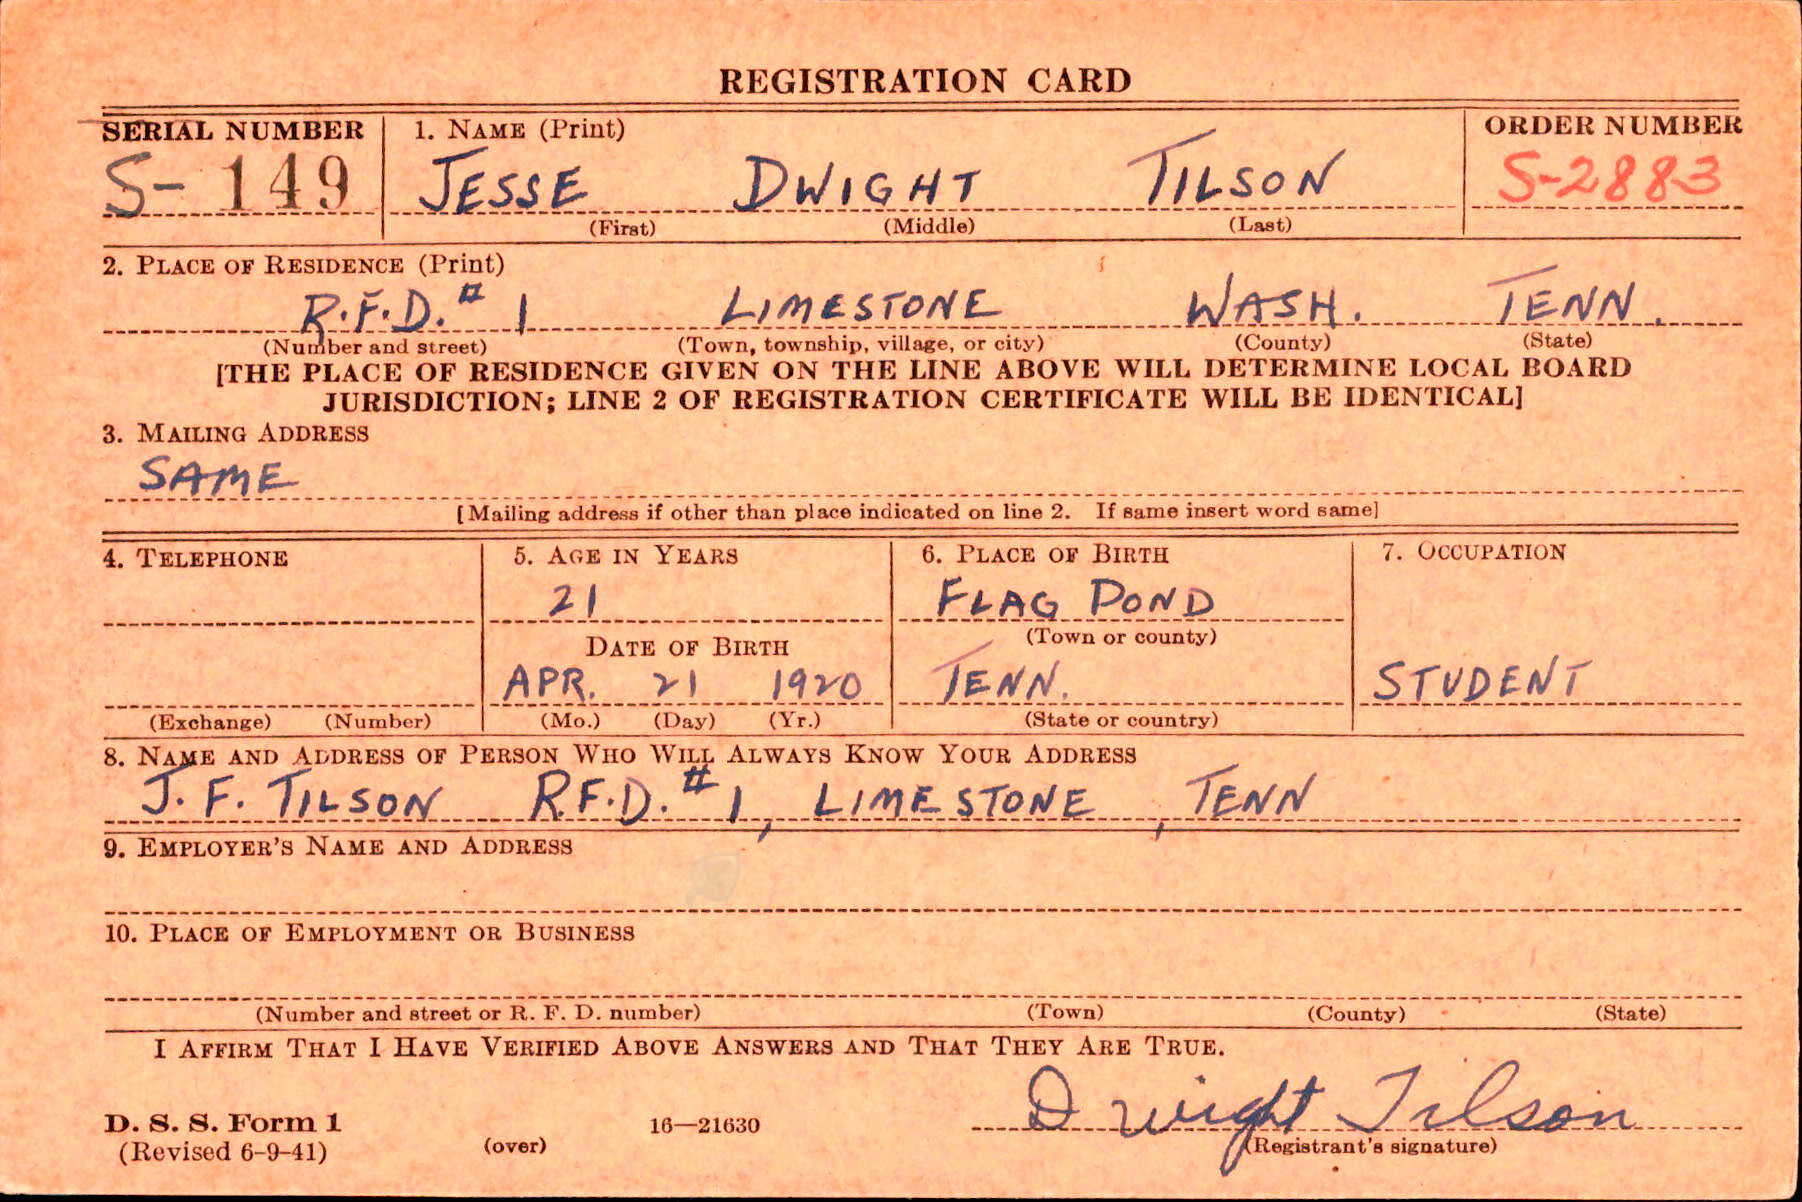 REGISTRATION CARD
SERIAL NUMBER
S- 149
1. NAME (Print)
JESSE DWIGHT TILSON
(First) (Middle) (Last)
ORDER NUMBER
S-2883
2. PLACE OF RESIDENCE (Print)
R.F.D. # 1 LIMESTONE WASH. TENN.
(Number and street) (Town, township, village, or city) (County) (State)
[THE PLACE OF RESIDENCE GIVEN ON THE LINE ABOVE WILL DETERMINE LOCAL BOARD
JURISDICTION; LINE 2 OF REGISTRATION CERTIFICATE WILL BE IDENTICAL]
3. MAILING ADDRESS
SAME
[Mailing address if other than place indicated on line 2. If same insert word same]
4. TELEPHONE
(Exchange) (Number)
5. AGE IN YEARS
21
DATE OF BIRTH
APR. 21 1920
(Mo.) (Day) (Yr.)
6. PLACE OF BIRTH
FLAG POND
(Town or county)
TENN.
(State or country)
7. OCCUPATION
STUDENT
8. NAME AND ADDRESS OF PERSON WHO WILL ALWAYS KNOW YOUR ADDRESS
J. F. TILSON R.F.D. # 1, LIMESTONE, TENN
9. EMPLOYER'S NAME AND ADDRESS
10. PLACE OF EMPLOYMENT OR BUSINESS
(Number and street or R. F. D. number) (Town) (County) (State)
I AFFIRM THAT I HAVE VERIFIED ABOVE ANSWERS AND THAT THEY ARE TRUE.
Dwight Tilson
(Registrant's signature)
D. S. S. Form 1
(Revised 6-9-41)
(over)
16—21630